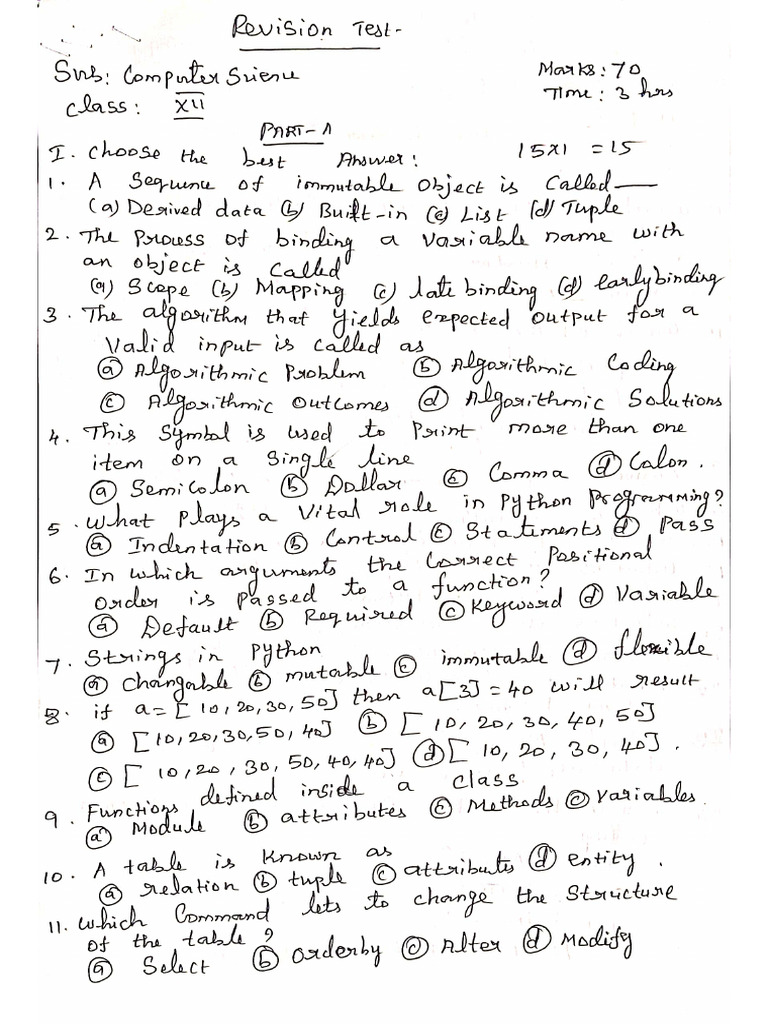 Revision Test-
Sub: Computer Science
Marks: 70
Class: XII
Time: 3 hrs
PART-A
I. Choose the best Answer: 15x1 = 15
1. A Sequence of immutable object is Called——
(a) Derived data (b) Built-in (c) List (d) Tuple
2. The Process of binding a variable name with
an object is called
(a) Scope (b) Mapping (c) late binding (d) early binding
3. The algorithm that yields expected output for a
Valid input is called as
(a) Algorithmic Problem (b) Algorithmic Coding
(c) Algorithmic Outcomes (d) Algorithmic Solutions
4. This Symbol is used to Print more than one
item on a Single line
(a) Semicolon (b) Dollar (c) Comma (d) Colon.
5. What Plays a Vital role in Python Programming?
(a) Indentation (b) Control (c) Statements (d) Pass
6. In which arguments the Correct Positional
Order is Passed to a function?
(a) Default (b) Required (c) Keyword (d) Variable
7. Strings in Python
(a) Changable (b) mutable (c) immutable (d) flexible
8. if a=[10,20,30,50] then a[3]=40 will result
(a) [10,20,30,50,40] (b) [10,20,30,40,50]
(c) [10,20,30,50,40,40] (d) [10,20,30,40].
9. Functions defined inside a class
(a) Module (b) attributes (c) Methods (c) Variables.
10. A table is known as
(a) relation (b) tuple (c) attributes (d) entity.
11. Which Command lets to change the Structure
of the table?
(a) Select (b) Orderby (c) Alter (d) Modify